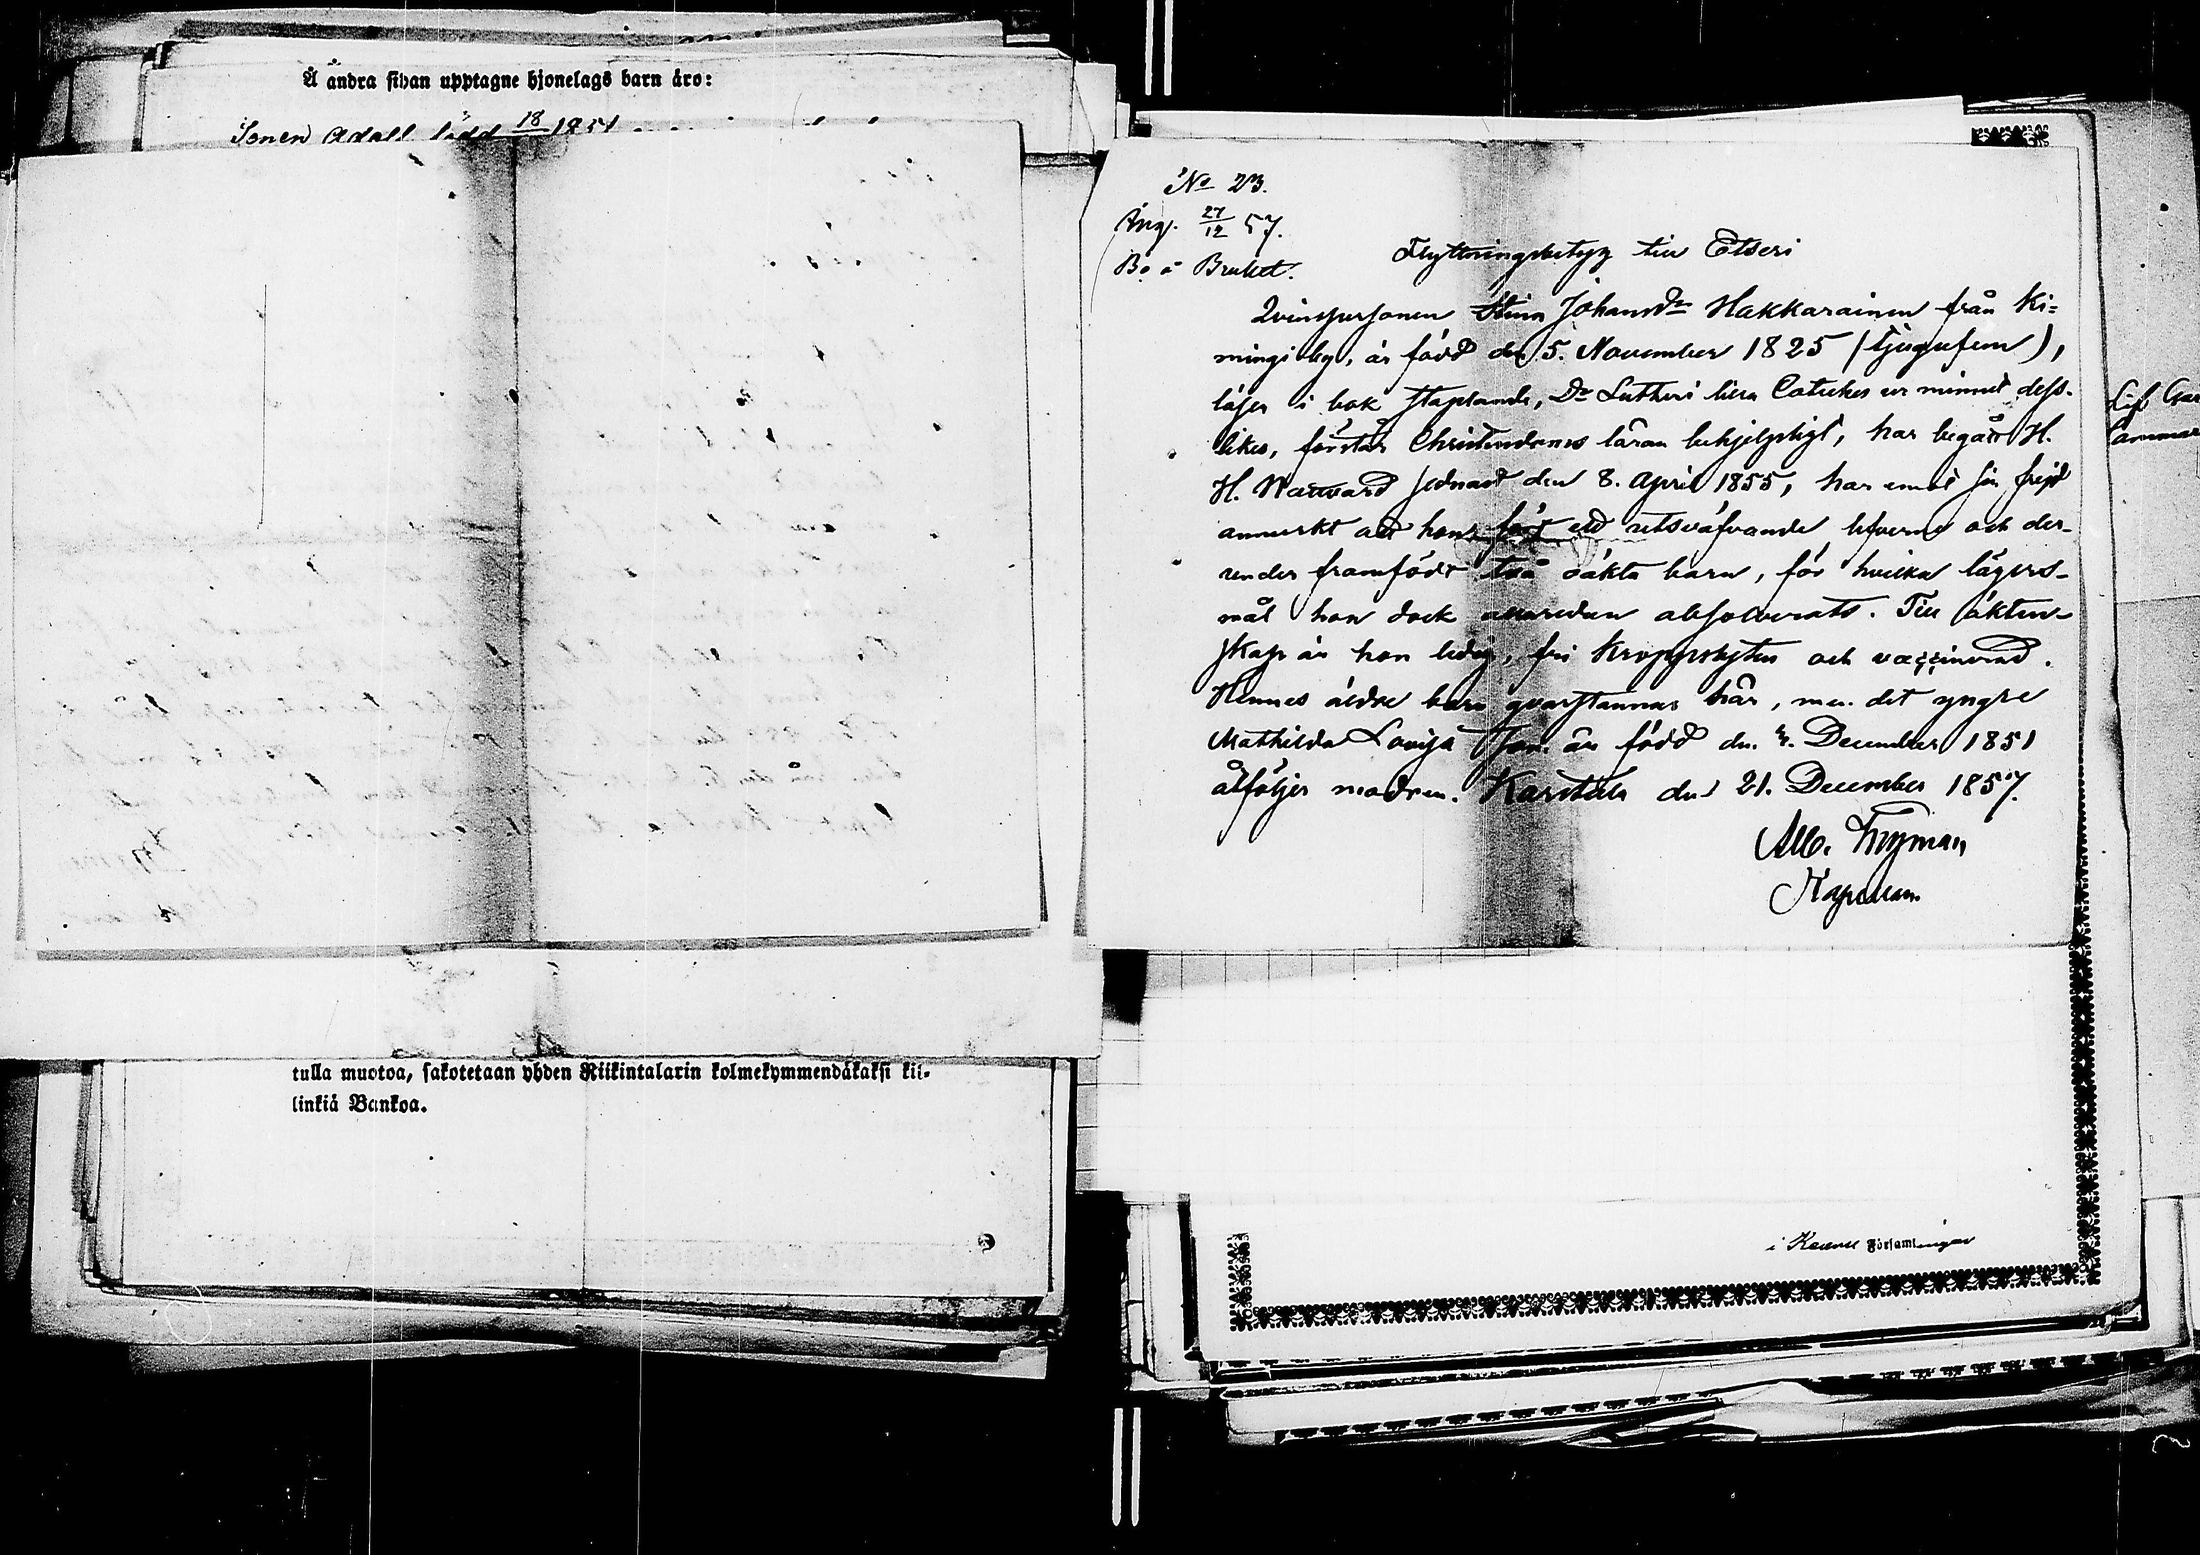 Å andra sidan upptagne hjonelags barn äro:
Sonen Adolf född 18 1851
tulla muotoa, sakotetaan yhden Riikintalarin kolmekymmendäkaksi kil-
linkiä Bankoa.
No 23.
Ang. 27/12 57.
Bo å Bruket.
Flyttningsbetyg till Etseri
Qvinspersonen Stina Johansdr Hakkarainen från Ki=
mingi by, är född den 5. November 1825 (tjugufem),
läser i bok staplande, Dr Lutheri lilla Catekes ur minnet dess-
likes, förstår Christendoms läran behjelpligt, har begått H.
H. Nattvard sednast den 8. April 1855, har emot sin frejd
anmerkt att hon fört ett utsväfvande lefverne och der-
under framfödt två oäkta barn, för hvilka lägers-
mål hon dock allaredan absolverats. Till äkten-
skap är hon ledig, fri kroppslyten och vaccinerad.
Hennes äldre barn qvarstannar här, men det yngre
Mathilda Lovisa som är född den 4. December 1851
åtföljer modren. Karstula den 21. December 1857.
Alb. Froman
Kapellan.
i Församlingar